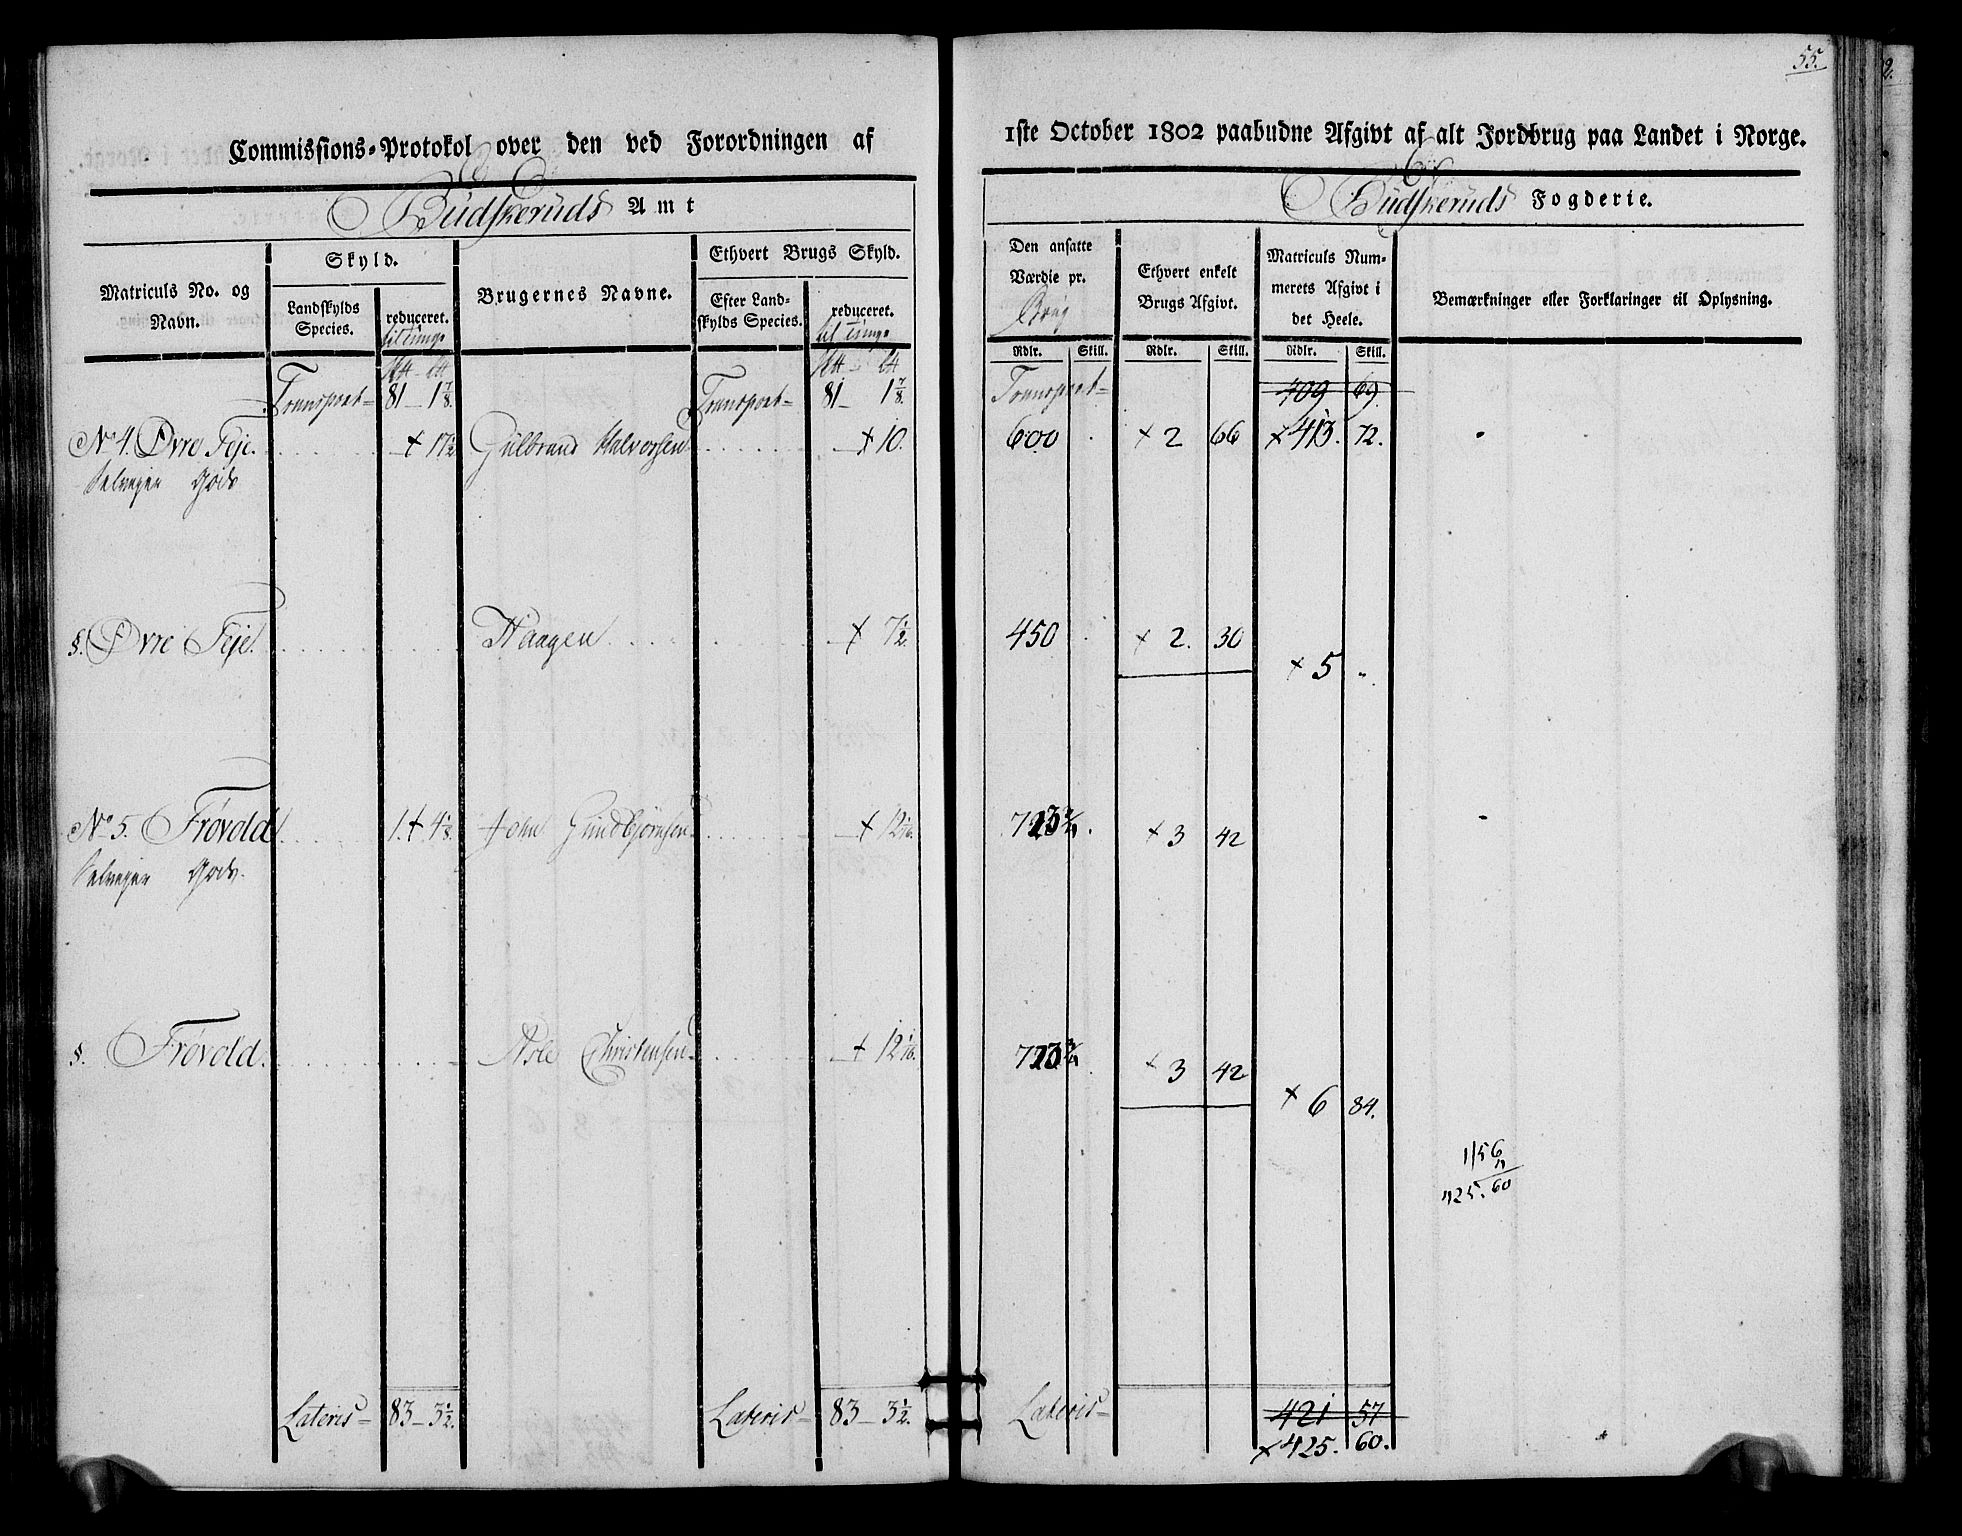 55.
2.
Commissions-Protokol over den ved Forordningen af
1ste October 1802 paabudne Afgivt af alt Jordbrug paa Landet i Norge.
Budskeruds Amt
Budskeruds Fogderie.
Matriculs No. og Navn.
Skyld.
Landskylds Species.
reduceret. til Tunge
Brugernes Navne.
Ethvert Brugs Skyld.
Efter Landskylds Species.
reduceret. til Tunge
Den ansatte Værdie pr. Brug
Ethvert enkelt Brugs Afgivt.
Matriculs Nummerets Afgivt i det Heele.
Bemærkninger eller Forklaringer til Oplysning.
Rdlr. Skill. Rdlr. Skill. Rdlr. Skill.
Transport 81 1 7/8. Transport 81 1 7/8. Transport 409 69.
No 4. Øvre Feje. + 17 1/2 Gulbrand Halvorsen + 10. 600 . + 2 66 + 413. 72.
Selveyer Gods
§. Øvre Feje. Haagen + 7 1/2. 450 . + 2. 30
+ 5 "
No 5. Frøvold 1. + 4 1/8. John Gundbjørnsen + 12 1/16. + 3 42
Selveyer Gods.
§. Frøvold. Asle Christensen + 12 1/16. + 3 42
+ 6 84.
Lateris 83 3 1/2. Lateris 83 3 1/2. Lateris 421 57
+ 425. 60.